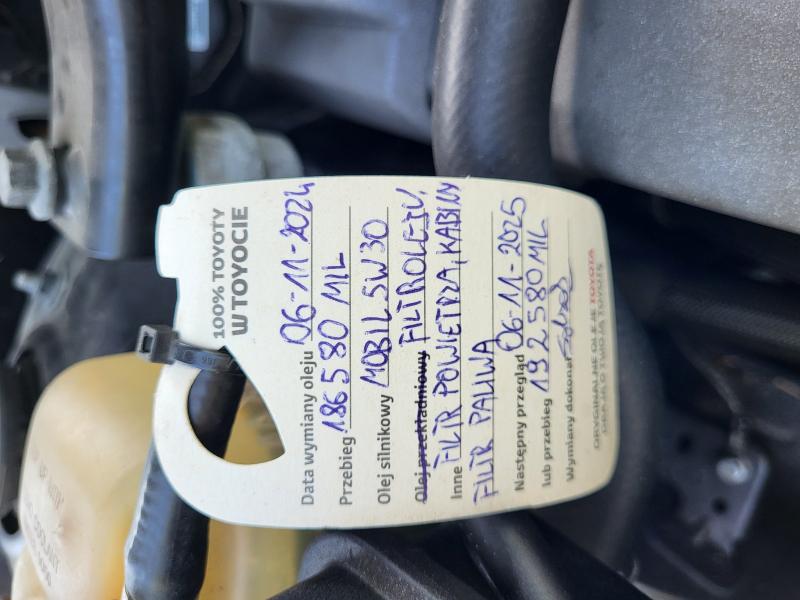 100% TOYOTY
W TOYOCIE
Data wymiany oleju 06-11-2024
Przebieg 186580 MIL
Olej silnikowy MOBIL 5W30
Olej przekładniowy FILTR OLEJU,
Inne FILTR POWIETRZA, KABINY
FILTR PALIWA
Następny przegląd 06-11-2025
lub przebieg 192580 MIL
Wymiany dokonał
ORYGINALNE OLEJE TOYOTA